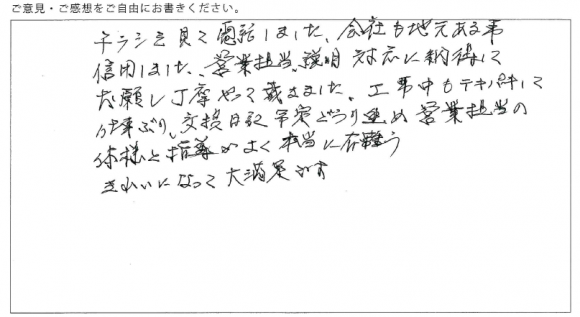 ご意見・ご感想をご自由にお書きください。
チラシを見て電話しました、会社も地元ある事
信用しました、営業担当、説明 対応に納得して
お願いし丁寧やって戴きました。工事中もテキパキして
仕事ぶり、交換日記 予定どうり進め 営業担当の
指導がよく 本当に有難う
きれいになって大満足です